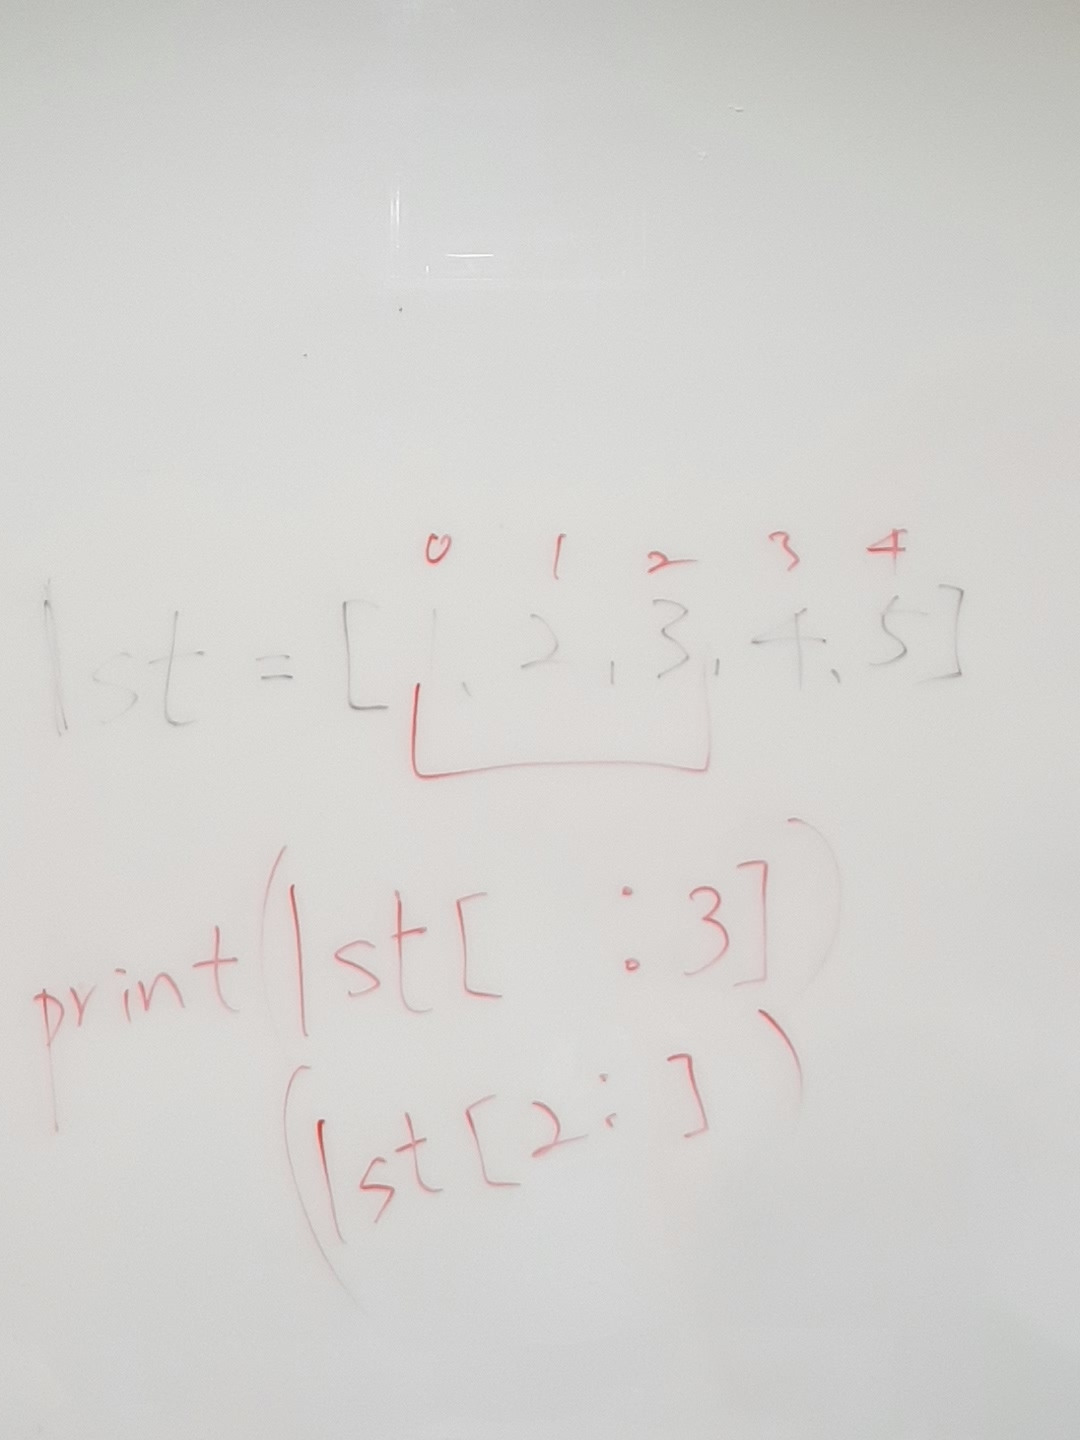 0 1 2 3 4
lst = [1, 2, 3, 4, 5]
print(lst[ :3])
(lst[2: ])